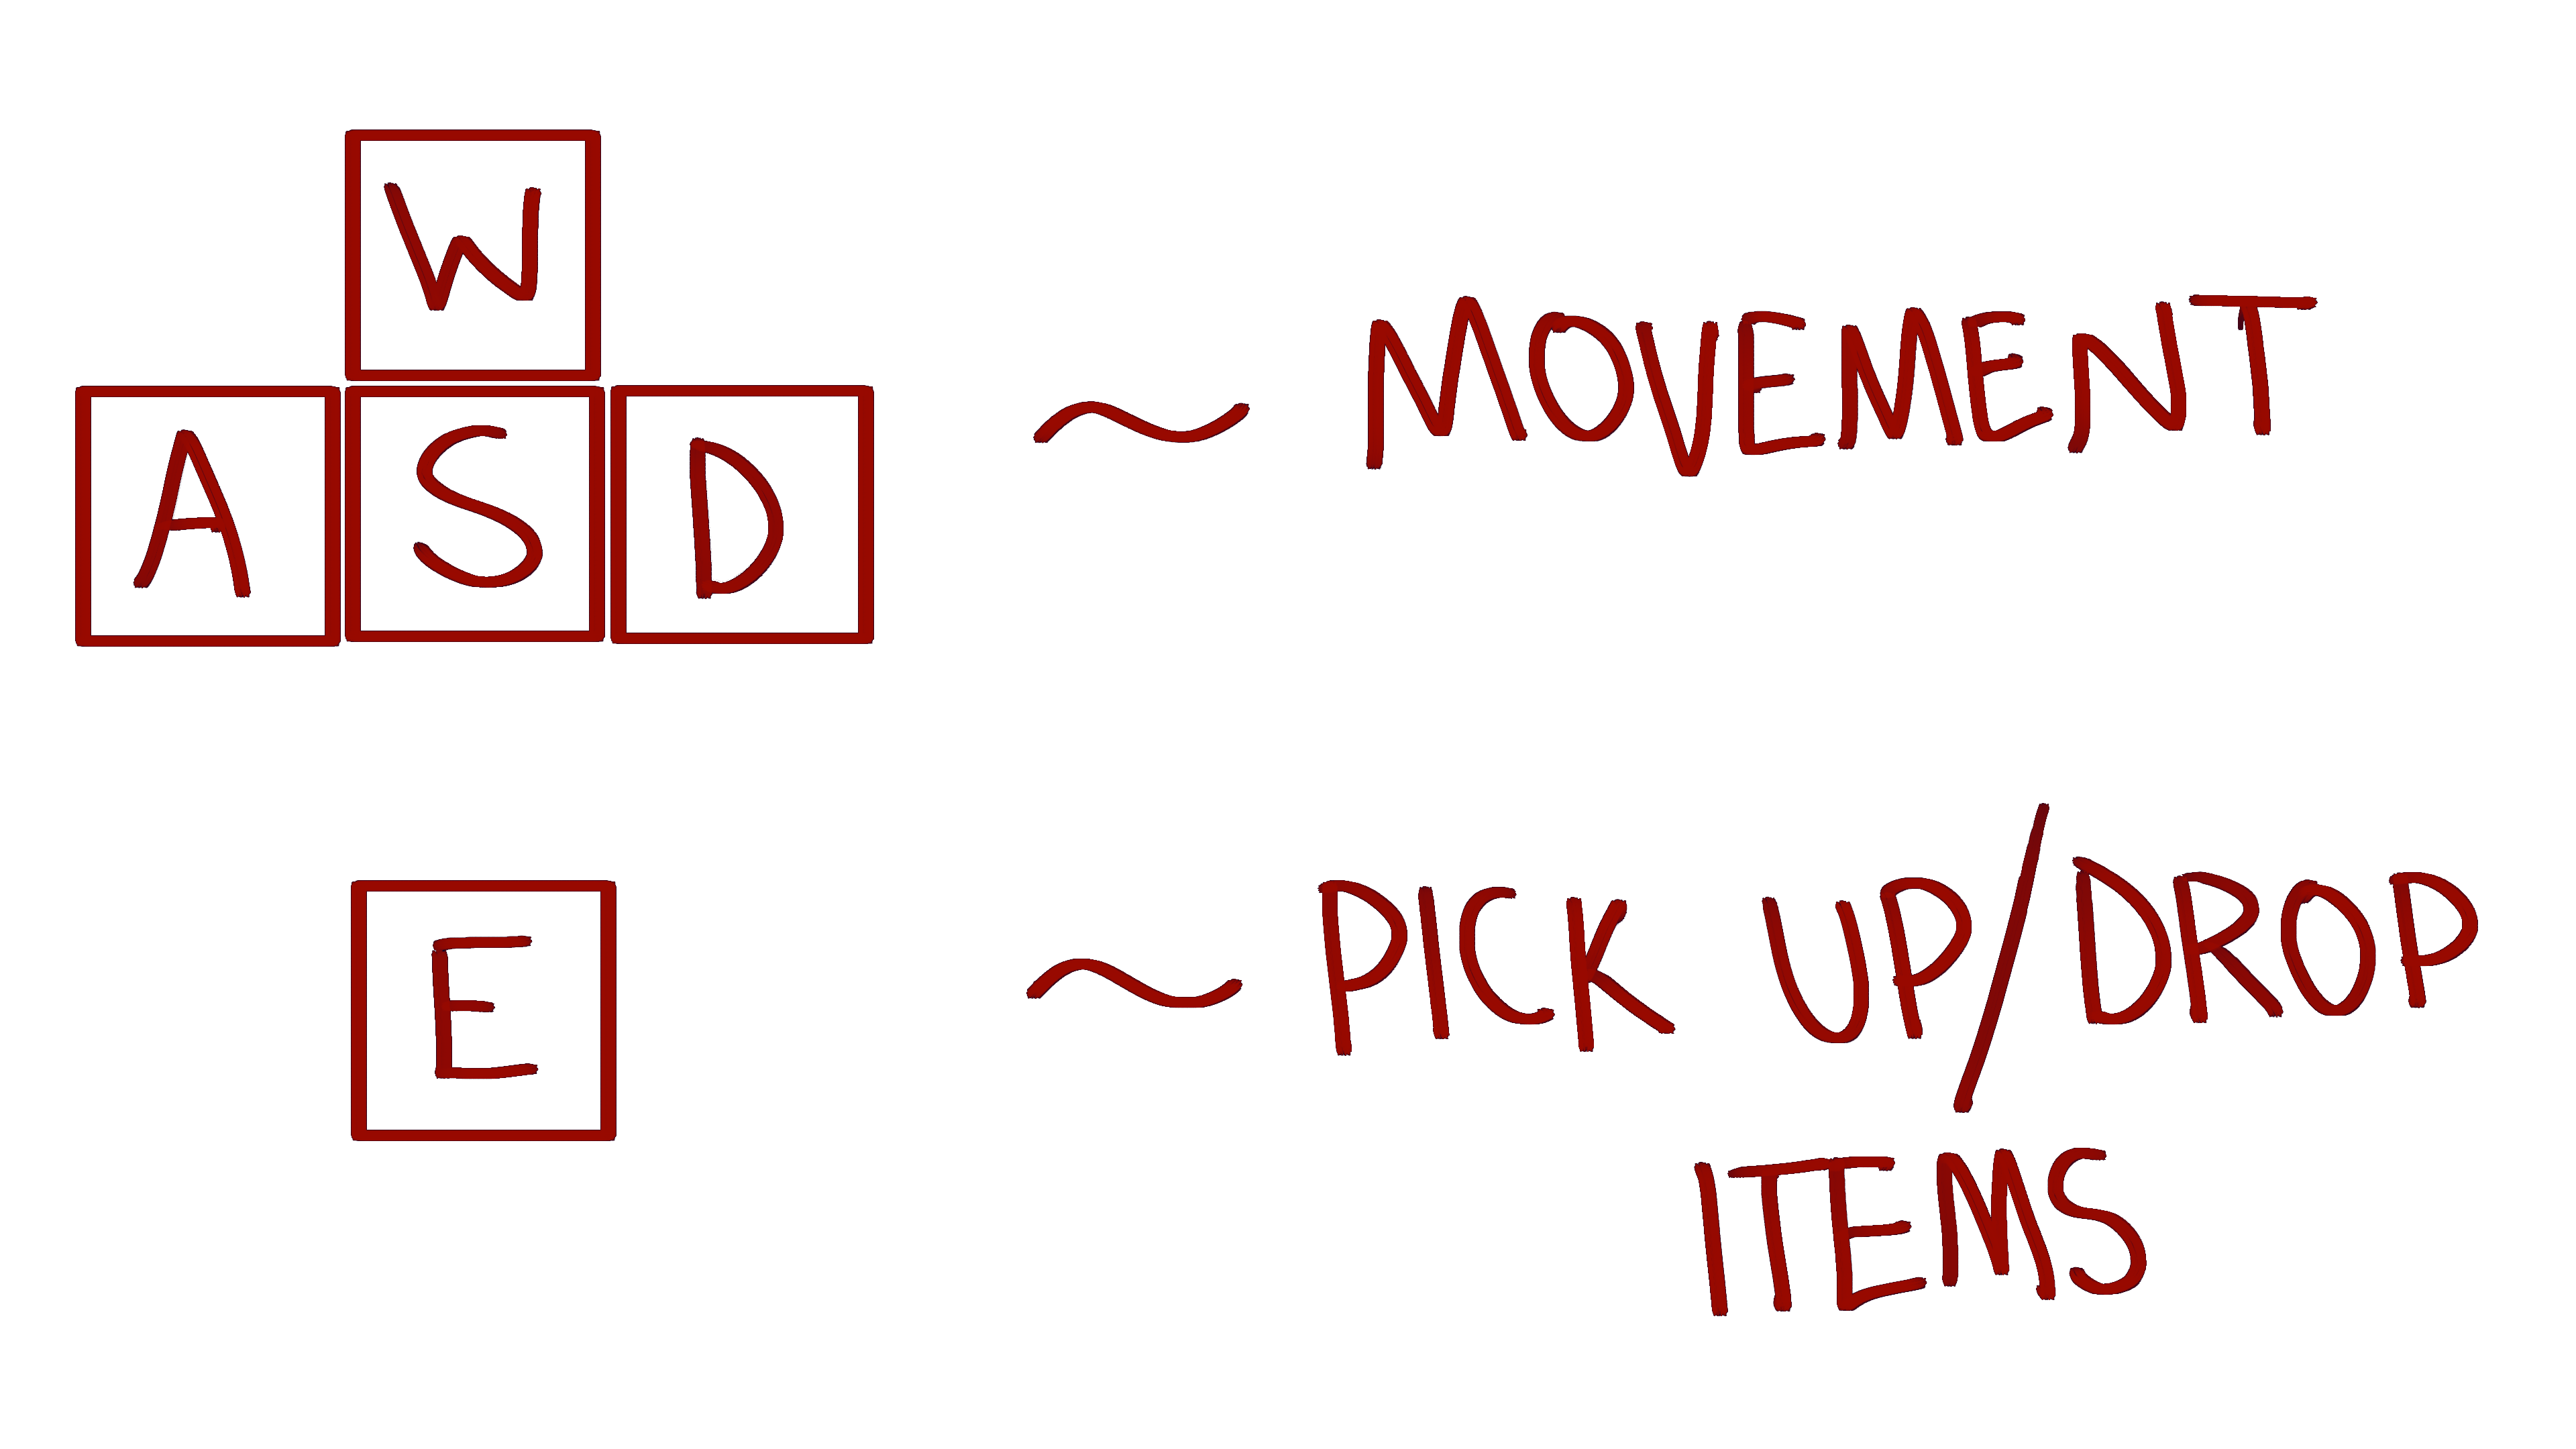 W
A S D ~ MOVEMENT
E ~ PICK UP/DROP
ITEMS